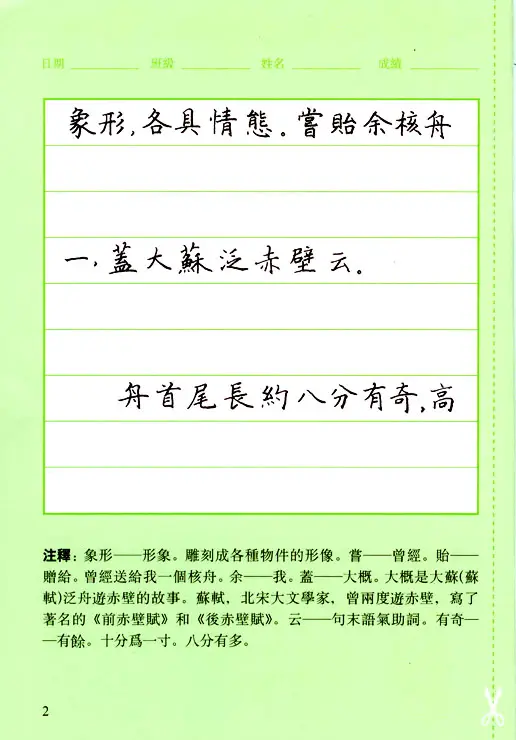 日期 班級 姓名 成績
象形,各具情態。嘗貽余核舟
一,蓋大蘇泛赤壁云。
舟首尾長約八分有奇,高
注釋：象形——形象。雕刻成各種物件的形像。嘗——曾經。貽——
贈給。曾經送給我一個核舟。余——我。蓋——大概。大概是大蘇(蘇
軾)泛舟遊赤壁的故事。蘇軾，北宋大文學家，曾兩度遊赤壁，寫了
著名的《前赤壁賦》和《後赤壁賦》。云——句末語氣助詞。有奇—
—有餘。十分爲一寸。八分有多。
2